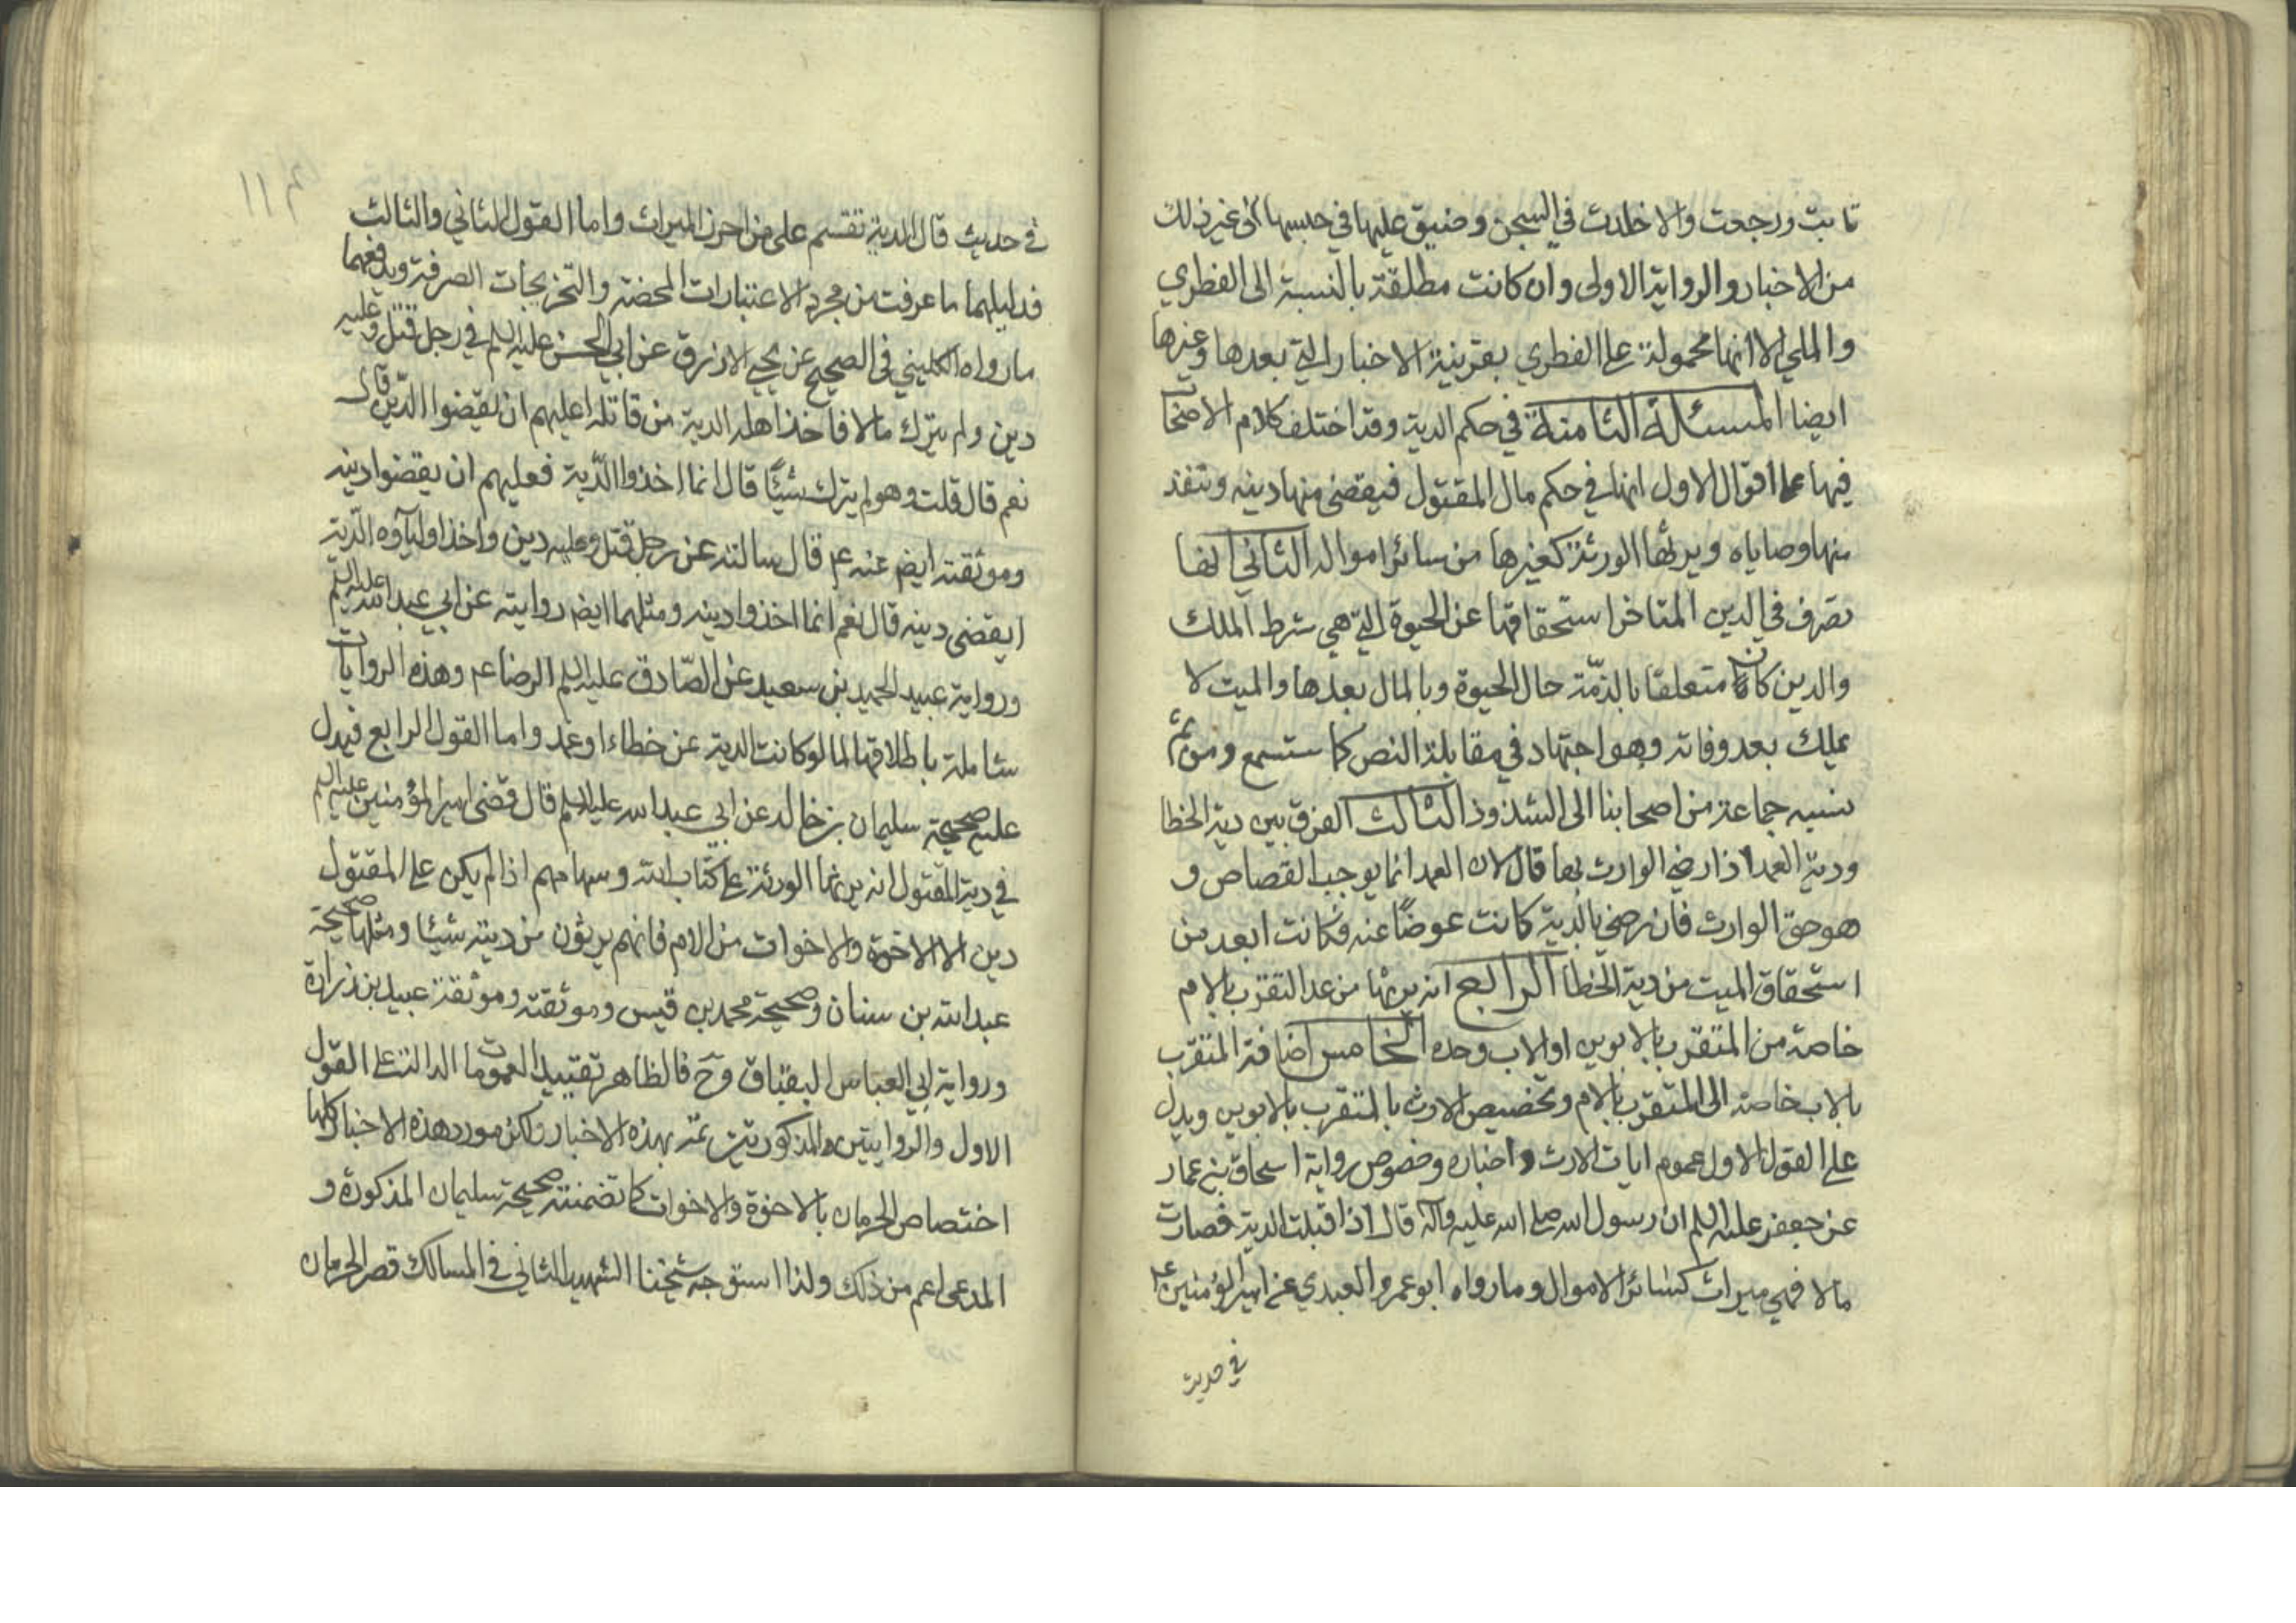 تابت ورجعت والا خلدت في السجن وضيق عليها في حبسها الى غير ذلك
من الاخبار والرواية الاولى وان كانت مطلقة بالنسبة الى الفطري
والملي الا انها محمولة على الفطري بقرينة الاخبار التي بعدها وغيرها
ايضا المسئلة الثامنة في حكم الدية وقد اختلف كلام الاصحاب
فيها على اقوال الاول انها في حكم مال المقتول فيقضى منها دينه وتنفذ
منها وصاياه ويرثها الورثة كغيرها من سائر امواله الثاني انها
تصرف في الدين المتاخر استحقاقها عن الحيوة التي هي شرط الملك
والدين كان متعلقا بالذمّة حال الحيوة وبالمال بعدها والميت لا
يملك بعد وفاته وهو اجتهاد في مقابلة النص كما ستسمع ومن ثم
نسبه جماعة من اصحابنا الى الشذوذ الثالث الفرق بين دية الخطا
ودية العمد اذا رضي الوارث بها قال لان العمد انما يوجب القصاص و
هو حق الوارث فان رضي بالدية كانت عوضًا عنه فكانت ابعد من
استحقاق الميت من دية الخطا الرابع انه يرثها من عدا التقرب بالام
خاصة من المتقرب بالابوين او الاب وحده الخامس اضافة المتقرب
بالاب خاصة الى المتقرب بالام وتخصيص الارث بالمتقرب بالابوين ويدل
على القول الاول عموم ايات الارث واخباره وخصوص رواية اسحاق بن عمار
عن جعفر عليه السلم ان رسول الله صلى الله عليه وآله قال اذا قبلت الدية فصارت
مالا فهي ميراث كسائر الاموال وما رواه ابو عمرو العبدي عن امير المؤمنين ع
في حديث
في حديث قال الدية تقسم على من احرز الميراث واما القول الثاني والثالث
فدليلهما ما عرفت من مجرد الاعتبارات المحضة والتخريجات الصرفة ويدفعهما
ما رواه الكليني في الصحيح عن يحيى الازرق عن ابي الحسن عليه السلم في رجل قتل وعليه
دين ولم يترك مالا فاخذ اهله الدية من قاتله اعليهم ان يقضوا الدّين قال
نعم قال قلت وهو لم يترك شيئًا قال انما اخذوا الدّية فعليهم ان يقضوا دينه
وموثقته ايضا عنه ع قال سالته عن رجل قتل وعليه دين واخذ اوليآؤه الدّية
ايقضى دينه قال نعم انما اخذوا دينه ومثلهما ايضا روايته عن ابي عبد الله عليه السلم
ورواية عبيد الحميد بن سعيد عن الصّادق عليه السلم الرضا ع وهذه الروايات
شاملة باطلاقها لما لو كانت الدية عن خطاء او عمد واما القول الرابع فيدل
عليه صحيحة سليمان بن خالد عن ابي عبد الله عليه السلم قال قضى امير المؤمنين عليه السلم
في دية المقتول انه يرثها الورثة على كتاب الله وسهامهم اذا لم يكن على المقتول
دين الا الاخوة والاخوات من الام فانهم يرثون من ديته شيئا ومثلها صحيحة
عبد الله بن سنان وصحيحة محمد بن قيس وموثقته وموثقة عبيد بن زرارة
ورواية ابي العباس البقباق وح فالظاهر تقييد العمومات الدالة على القول
الاول والروايتين المذكورتين ثمّة بهذه الاخبار ولكن مورد هذه الاخبار كلها
اختصاص الحرمان بالاخوة والاخوات كما تضمنته صحيحة سليمان المذكورة و
المدعى اعم من ذلك ولذا استوجه شيخنا الشهيد الثاني في المسالك قصر الحرمان